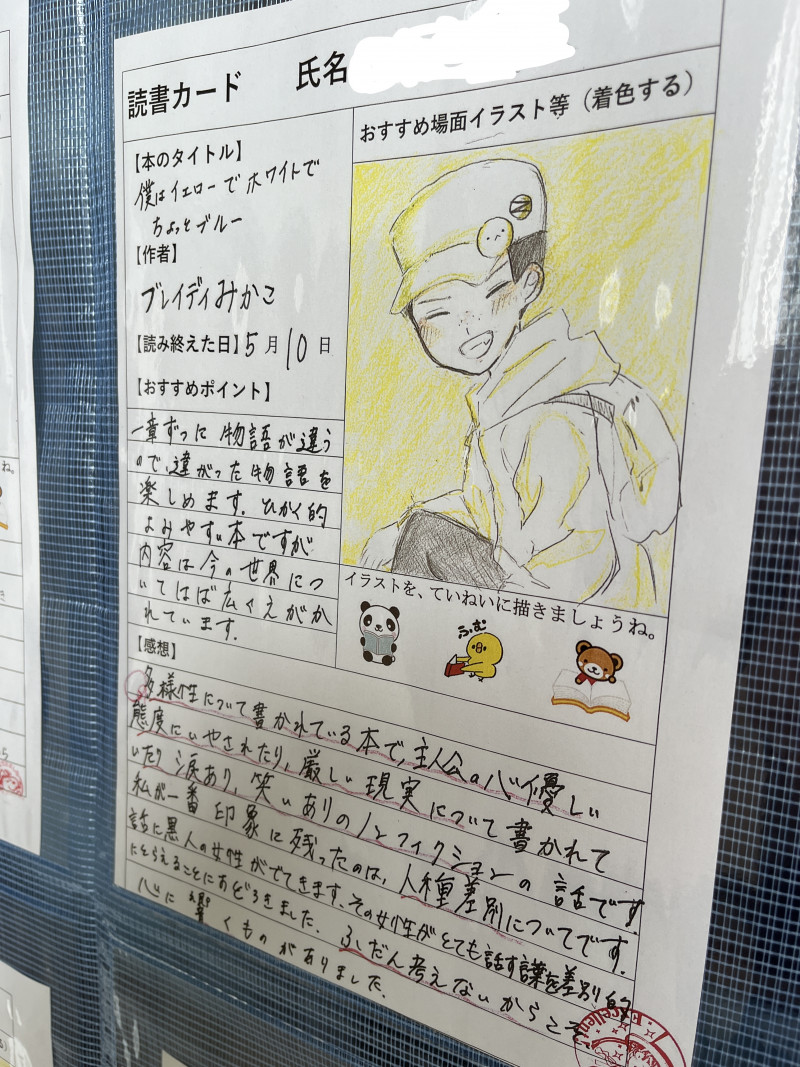 読書カード 氏名
【本のタイトル】
僕はイエローでホワイトで
ちょっとブルー
【作者】
ブレイディみかこ
【読み終えた日】5月10日
【おすすめポイント】
一章ずつに物語が違う
ので、違がった物語を
楽しめます。ひかく的
よみやすい本ですが
内容は今の世界につ
いてはば広くえがか
れています。
おすすめ場面イラスト等（着色する）
イラストを、ていねいに描きましょうね。
ふむ
【感想】
多様性について書かれている本で、主人公の心優しい
態度にいやされたり、厳しい現実について書かれて
いたり涙あり、笑いありのノンフィクションの話です。
私が一番印象に残ったのは、人種差別についてです。
話に黒人の女性がでてきます。その女性がとても話す言葉を差別的
にとらえることにおどろきました。ふだん考えないからこそ
心に響くものがありました。
Excellent